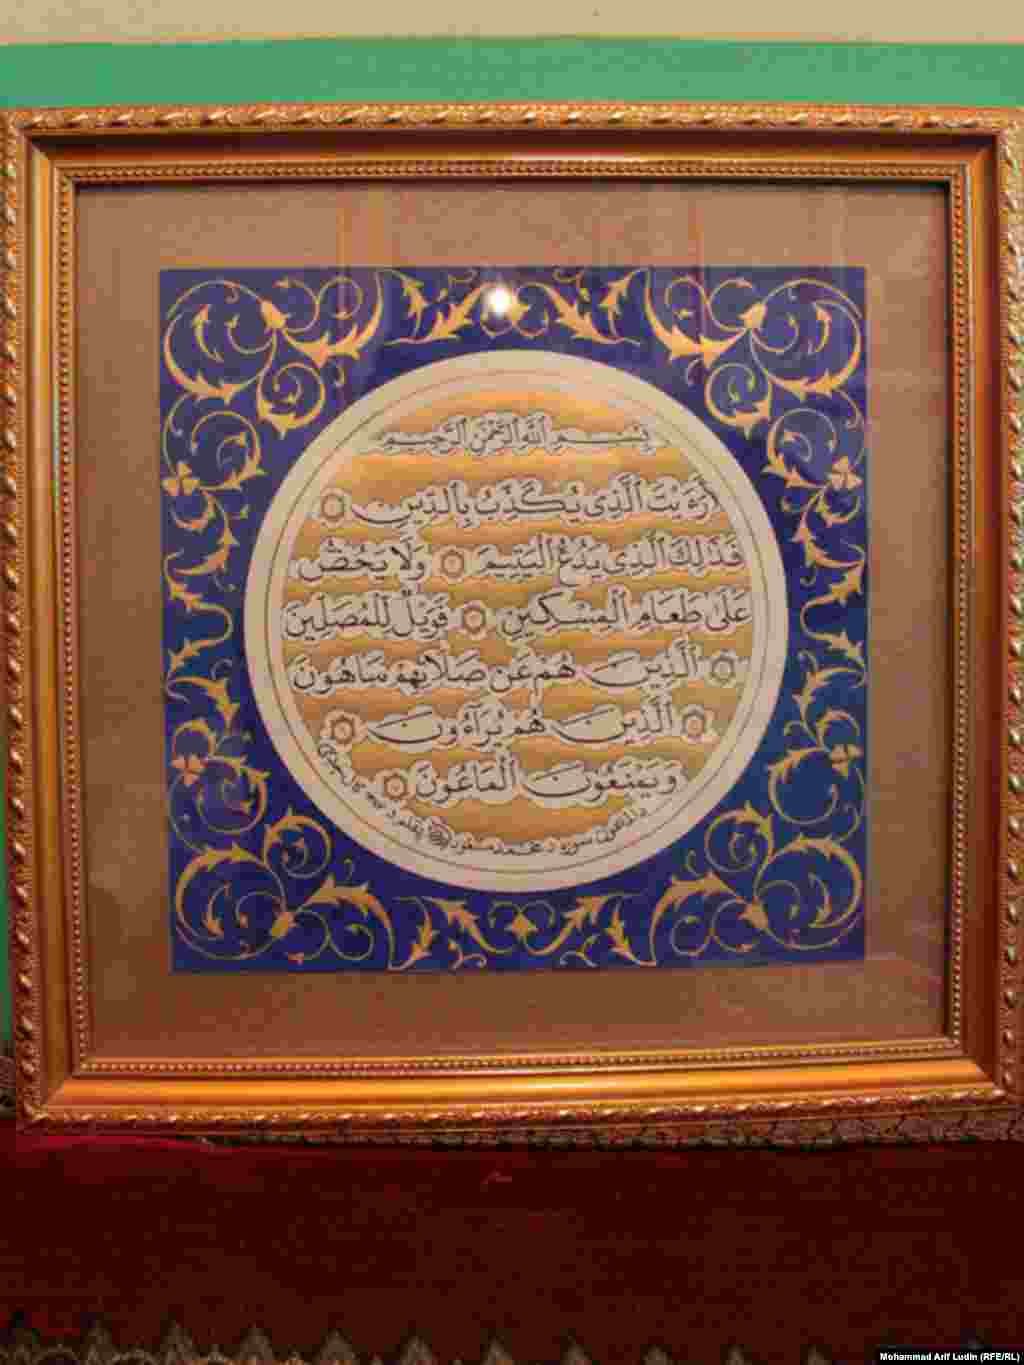 بسم الله الرحمن الرحيم
أرءيت الذي يكذب بالدين
فذلك الذي يدع اليتيم ولا يحض
على طعام المسكين فويل للمصلين
الذين هم عن صلاتهم ساهون
الذين هم يرآءون
ويمنعون الماعون
Mohammad Arif Ludin (RFE/RL)